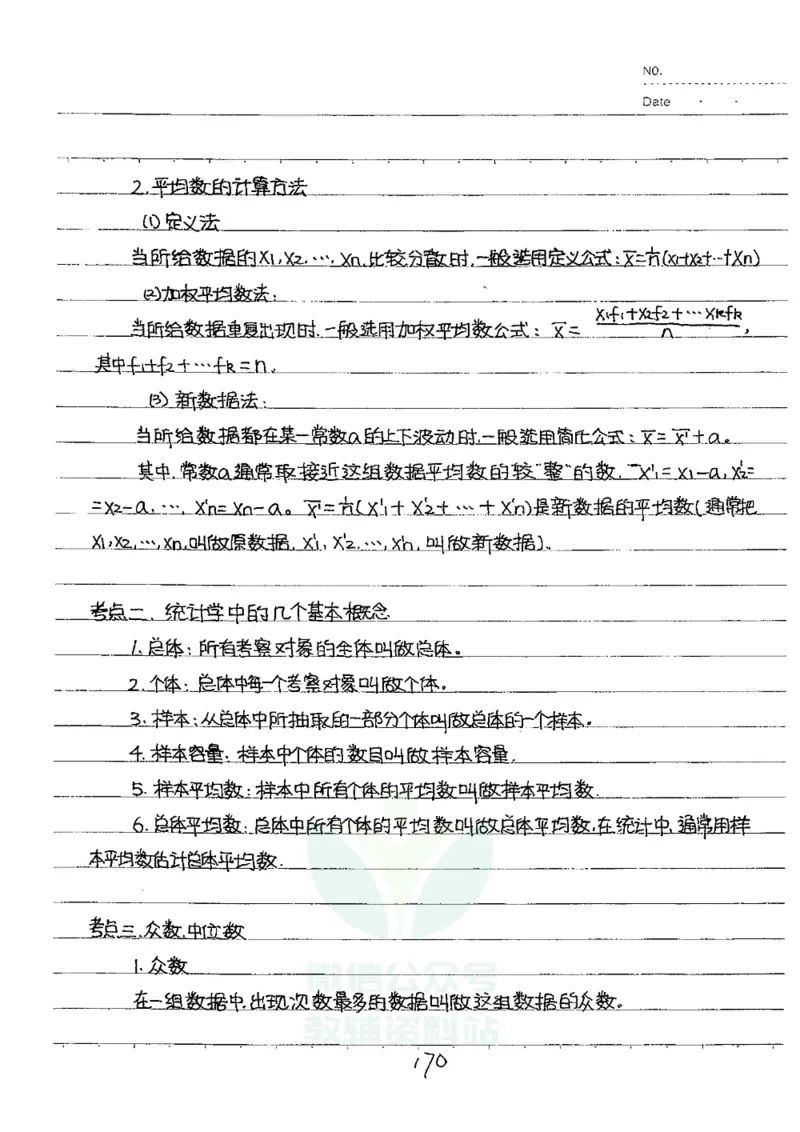 NO.
Date
2.平均数的计算方法
(1)定义法
当所给数据的x1,x2,…,xn,比较分散时,一般选用定义公式:x̄=1/n(x1+x2+…+xn)
(2)加权平均数法:
当所给数据重复出现时.一般选用加权平均数公式: x̄=(x1f1+x2f2+…xkfk)/n,
其中f1+f2+…fk=n.
(3)新数据法:
当所给数据都在某一常数a的上下波动时.一般选用简化公式:x̄=x̄'+a。
其中,常数a通常取接近这组数据平均数的较"整"的数,x'1=x1-a,x'2=
=x2-a.…, x'n=xn-a。x̄'=1/n(x'1+x'2+…+x'n)是新数据的平均数(通常把
x1,x2,…,xn,叫做原数据, x'1,x'2.…,x'n,叫做新数据)。
考点二、统计学中的几个基本概念
1.总体:所有考察对象的全体叫做总体。
2.个体:总体中每一个考察对象叫做个体。
3.样本:从总体中所抽取的一部分个体叫做总体的一个样本。
4.样本容量.样本中个体的数目叫做样本容量.
5.样本平均数:样本中所有个体的平均数叫做样本平均数.
6.总体平均数:总体中所有个体的平均数叫做总体平均数,在统计中,通常用样
本平均数估计总体平均数.
考点三.众数,中位数
1.众数
在一组数据中,出现次数最多的数据叫做这组数据的众数。
微信公众号
教辅资料站
170